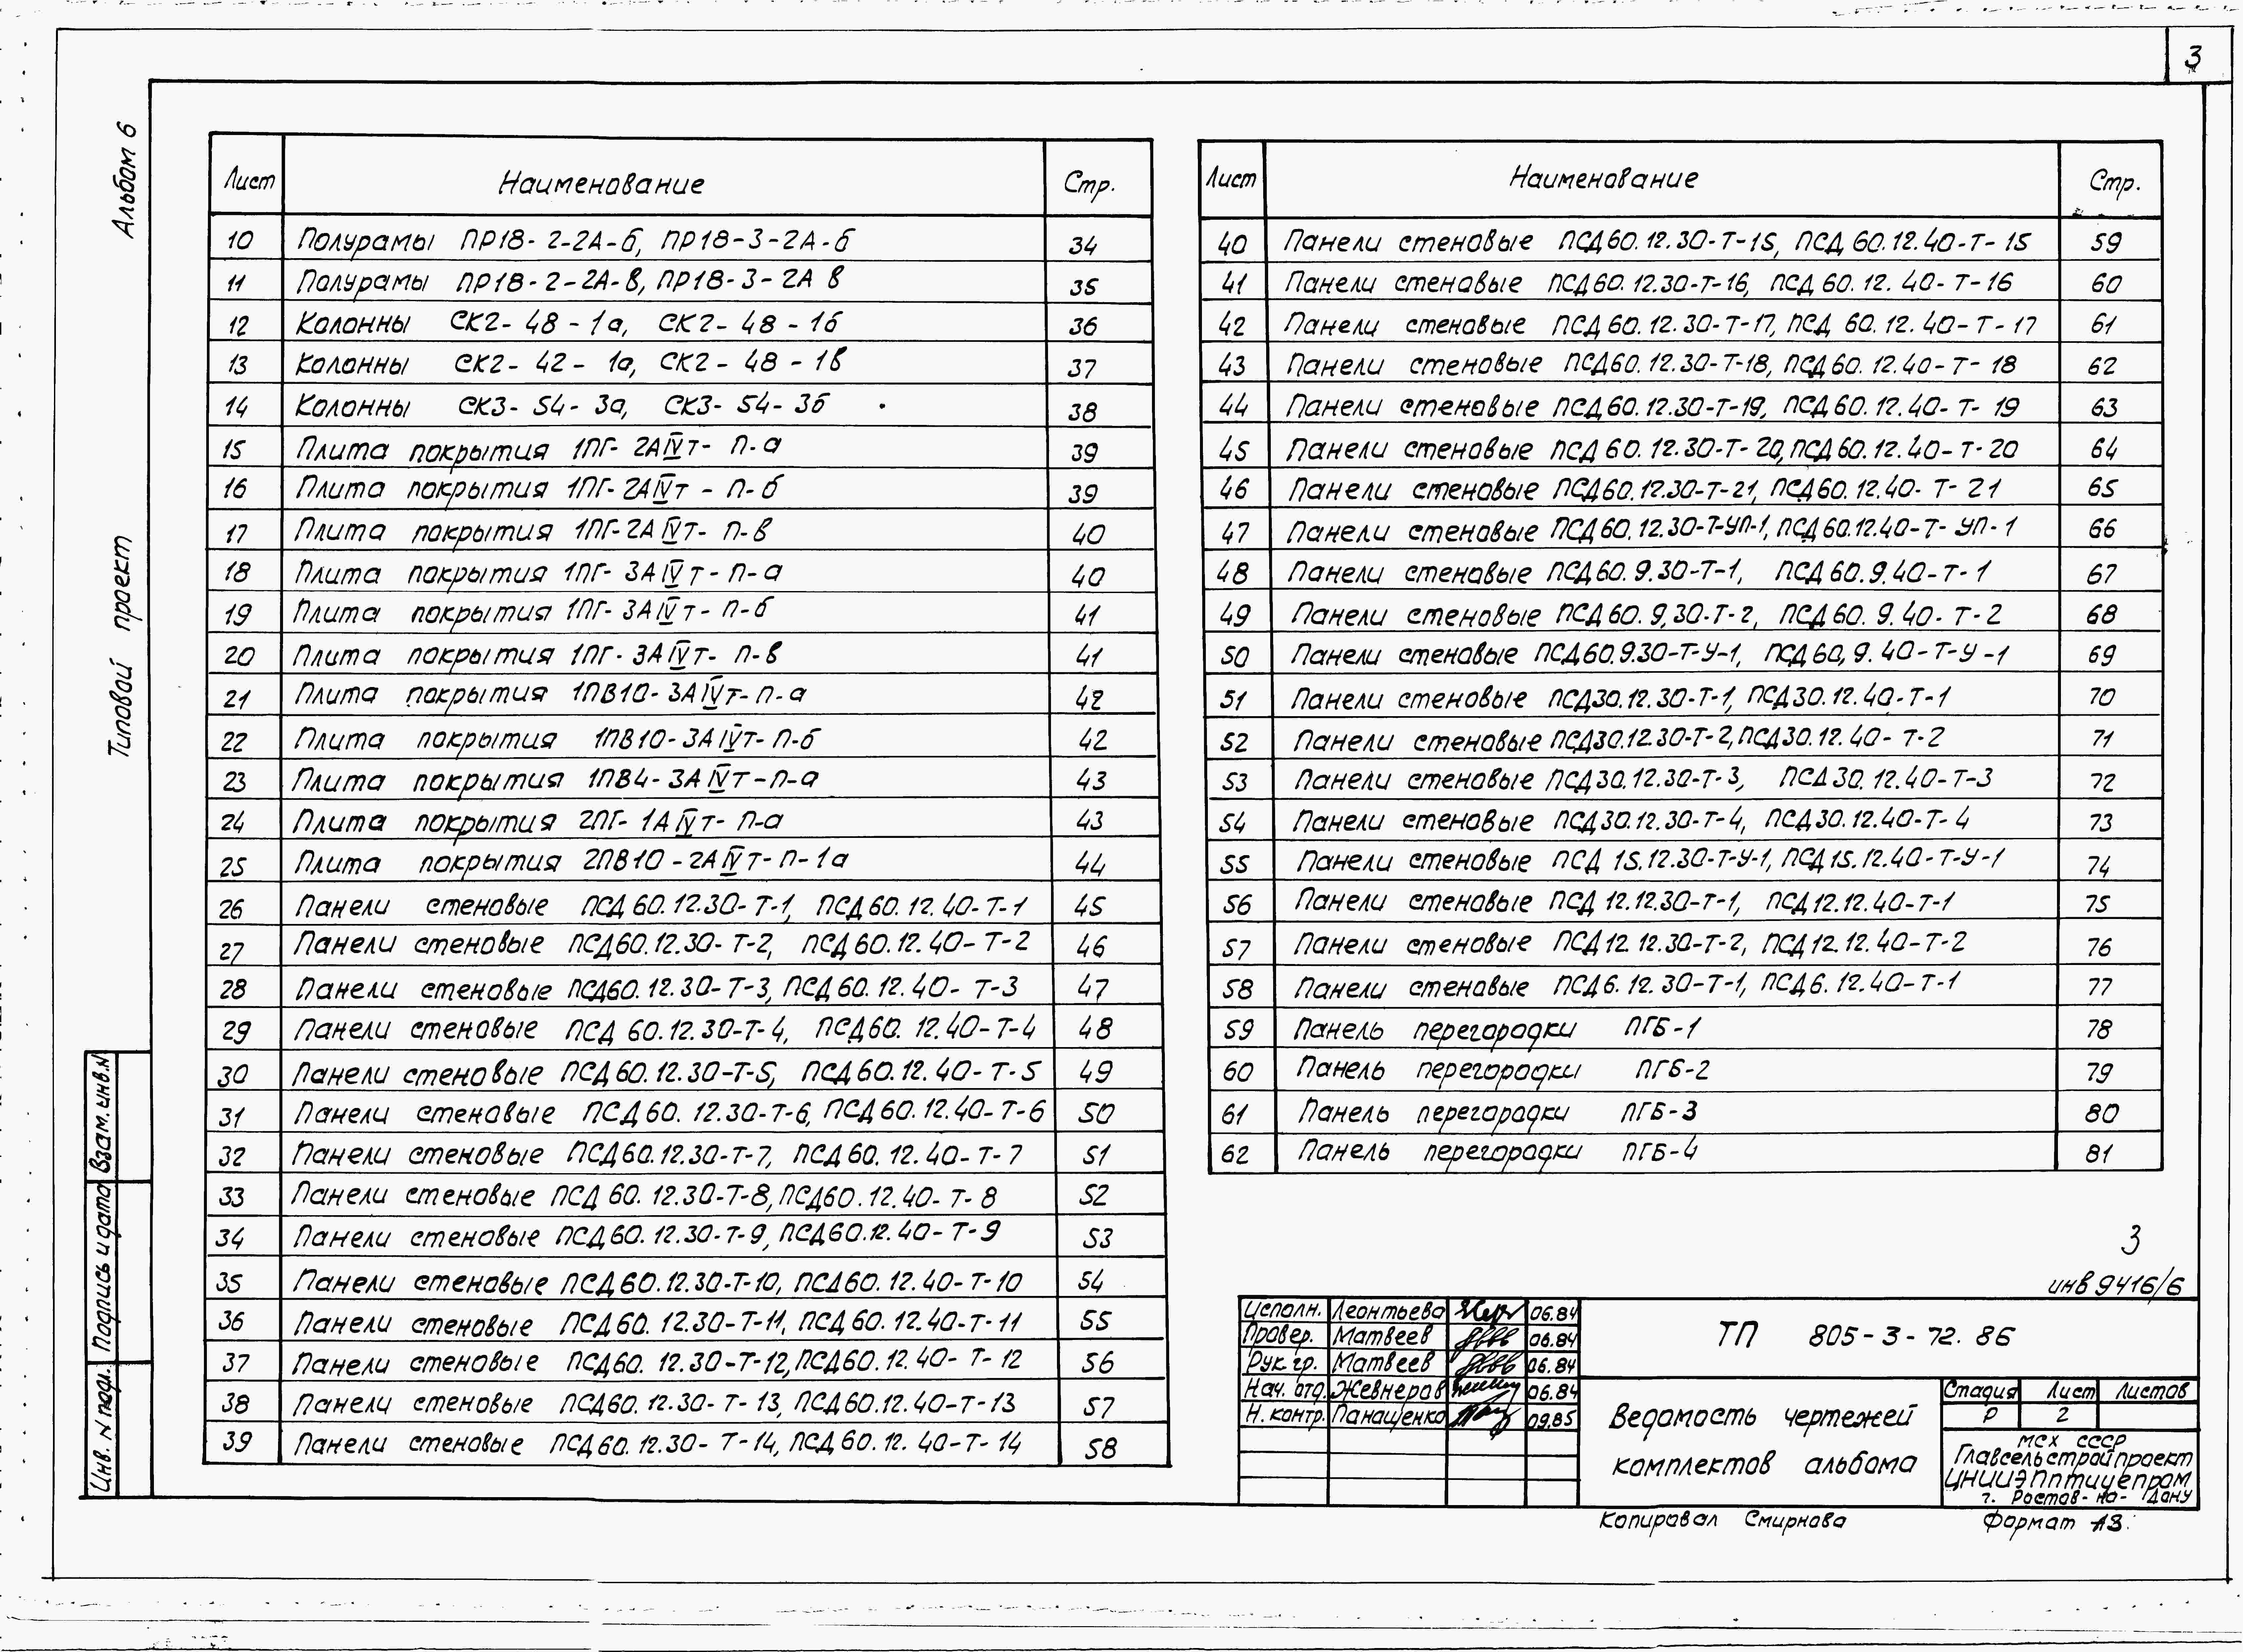 3
Альбом 6
Типовой проект
Взам. инв. N
Подпись и дата
Инв. N подл.
Лист Наименование Стр.
10 Полурамы ПР18-2-2А-б, ПР18-3-2А-б 34
11 Полурамы ПР18-2-2А-в, ПР18-3-2А в 35
12 Колонны СК2-48-1а, СК2-48-1б 36
13 Колонны СК2-42-1а, СК2-48-1в 37
14 Колонны СК3-54-3а, СК3-54-3б 38
15 Плита покрытия 1ПГ-2АIVт-П-а 39
16 Плита покрытия 1ПГ-2АIVт-П-б 39
17 Плита покрытия 1ПГ-2АIVт-П-в 40
18 Плита покрытия 1ПГ-3АIVт-П-а 40
19 Плита покрытия 1ПГ-3АIVт-П-б 41
20 Плита покрытия 1ПГ-3АIVт-П-в 41
21 Плита покрытия 1ПВ10-3АIVт-П-а 42
22 Плита покрытия 1ПВ10-3АIVт-П-б 42
23 Плита покрытия 1ПВ4-3АIVт-П-а 43
24 Плита покрытия 2ПГ-1АIVт-П-а 43
25 Плита покрытия 2ПВ10-2АIVт-П-1а 44
26 Панели стеновые ПСД60.12.30-Т-1, ПСД60.12.40-Т-1 45
27 Панели стеновые ПСД60.12.30-Т-2, ПСД60.12.40-Т-2 46
28 Панели стеновые ПСД60.12.30-Т-3, ПСД60.12.40-Т-3 47
29 Панели стеновые ПСД 60.12.30-Т-4, ПСД60.12.40-Т-4 48
30 Панели стеновые ПСД60.12.30-Т-5, ПСД60.12.40-Т-5 49
31 Панели стеновые ПСД60.12.30-Т-6, ПСД60.12.40-Т-6 50
32 Панели стеновые ПСД60.12.30-Т-7, ПСД60.12.40-Т-7 51
33 Панели стеновые ПСД 60.12.30-Т-8, ПСД60.12.40-Т-8 52
34 Панели стеновые ПСД60.12.30-Т-9, ПСД60.12.40-Т-9 53
35 Панели стеновые ПСД60.12.30-Т-10, ПСД60.12.40-Т-10 54
36 Панели стеновые ПСД60.12.30-Т-11, ПСД60.12.40-Т-11 55
37 Панели стеновые ПСД60.12.30-Т-12, ПСД60.12.40-Т-12 56
38 Панели стеновые ПСД60.12.30-Т-13, ПСД60.12.40-Т-13 57
39 Панели стеновые ПСД60.12.30-Т-14, ПСД60.12.40-Т-14 58
Лист Наименование Стр.
40 Панели стеновые ПСД60.12.30-Т-15, ПСД60.12.40-Т-15 59
41 Панели стеновые ПСД60.12.30-Т-16, ПСД60.12.40-Т-16 60
42 Панели стеновые ПСД60.12.30-Т-17, ПСД 60.12.40-Т-17 61
43 Панели стеновые ПСД60.12.30-Т-18, ПСД60.12.40-Т-18 62
44 Панели стеновые ПСД60.12.30-Т-19, ПСД60.12.40-Т-19 63
45 Панели стеновые ПСД60.12.30-Т-20, ПСД60.12.40-Т-20 64
46 Панели стеновые ПСД60.12.30-Т-21, ПСД60.12.40-Т-21 65
47 Панели стеновые ПСД60.12.30-Т-УП-1, ПСД60.12.40-Т-УП-1 66
48 Панели стеновые ПСД60.9.30-Т-1, ПСД60.9.40-Т-1 67
49 Панели стеновые ПСД60.9,30-Т-2, ПСД60.9.40-Т-2 68
50 Панели стеновые ПСД60.9.30-Т-У-1, ПСД60,9.40-Т-У-1 69
51 Панели стеновые ПСД30.12.30-Т-1, ПСД30.12.40-Т-1 70
52 Панели стеновые ПСД30.12.30-Т-2, ПСД30.12.40-Т-2 71
53 Панели стеновые ПСД30.12.30-Т-3, ПСД30.12.40-Т-3 72
54 Панели стеновые ПСД30.12.30-Т-4, ПСД30.12.40-Т-4 73
55 Панели стеновые ПСД 15.12.30-Т-У-1, ПСД15.12.40-Т-У-1 74
56 Панели стеновые ПСД 12.12.30-Т-1, ПСД12.12.40-Т-1 75
57 Панели стеновые ПСД12.12.30-Т-2, ПСД12.12.40-Т-2 76
58 Панели стеновые ПСД6.12.30-Т-1, ПСД6.12.40-Т-1 77
59 Панель перегородки ПГБ-1 78
60 Панель перегородки ПГБ-2 79
61 Панель перегородки ПГБ-3 80
62 Панель перегородки ПГБ-4 81
3
инв 9416/6
Исполн. Леонтьева 06.84
Провер. Матвеев 06.84
Рук. гр. Матвеев 06.84
Нач. отд. Жевнеров 06.84
Н. контр. Панащенко 09.85
ТП 805-3-72.86
Ведомость чертежей
комплектов альбома
Стадия Лист Листов
Р 2
МСХ СССР
Главсельстройпроект
ЦНИИЭПптицепром
г. Ростов-на-Дону
Копировал Смирнова
Формат А3